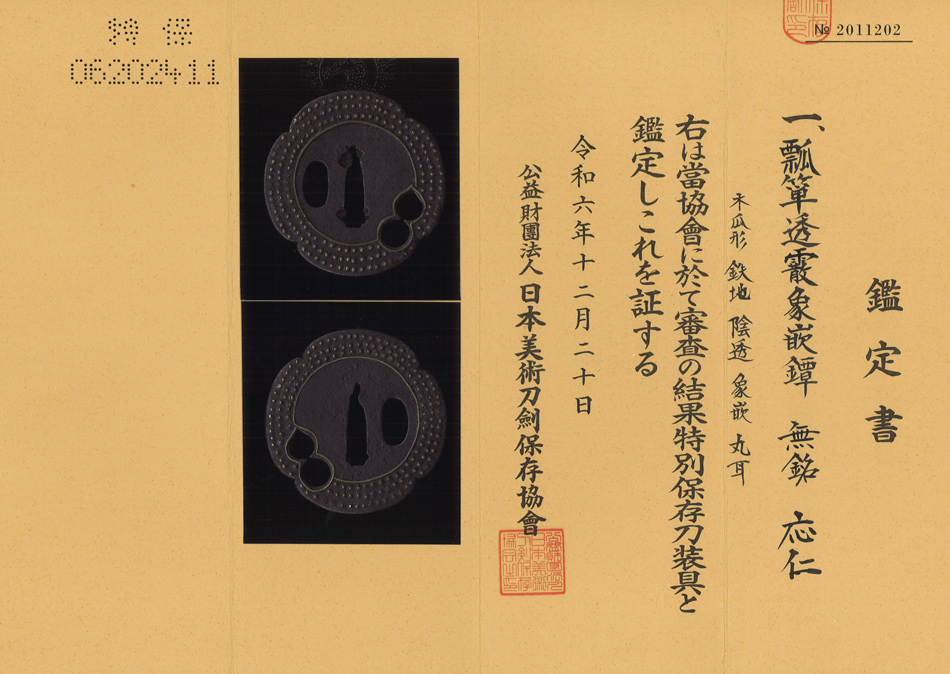 № 2011202
鑑定書
一、瓢箪透霰象嵌鐔 無銘 応仁
木瓜形 鉄地 陰透 象嵌 丸耳
右は當協會に於て審査の結果特別保存刀装具と
鑑定しこれを証する
令和六年十二月二十日
公益財團法人 日本美術刀劍保存協會
特保
06202411